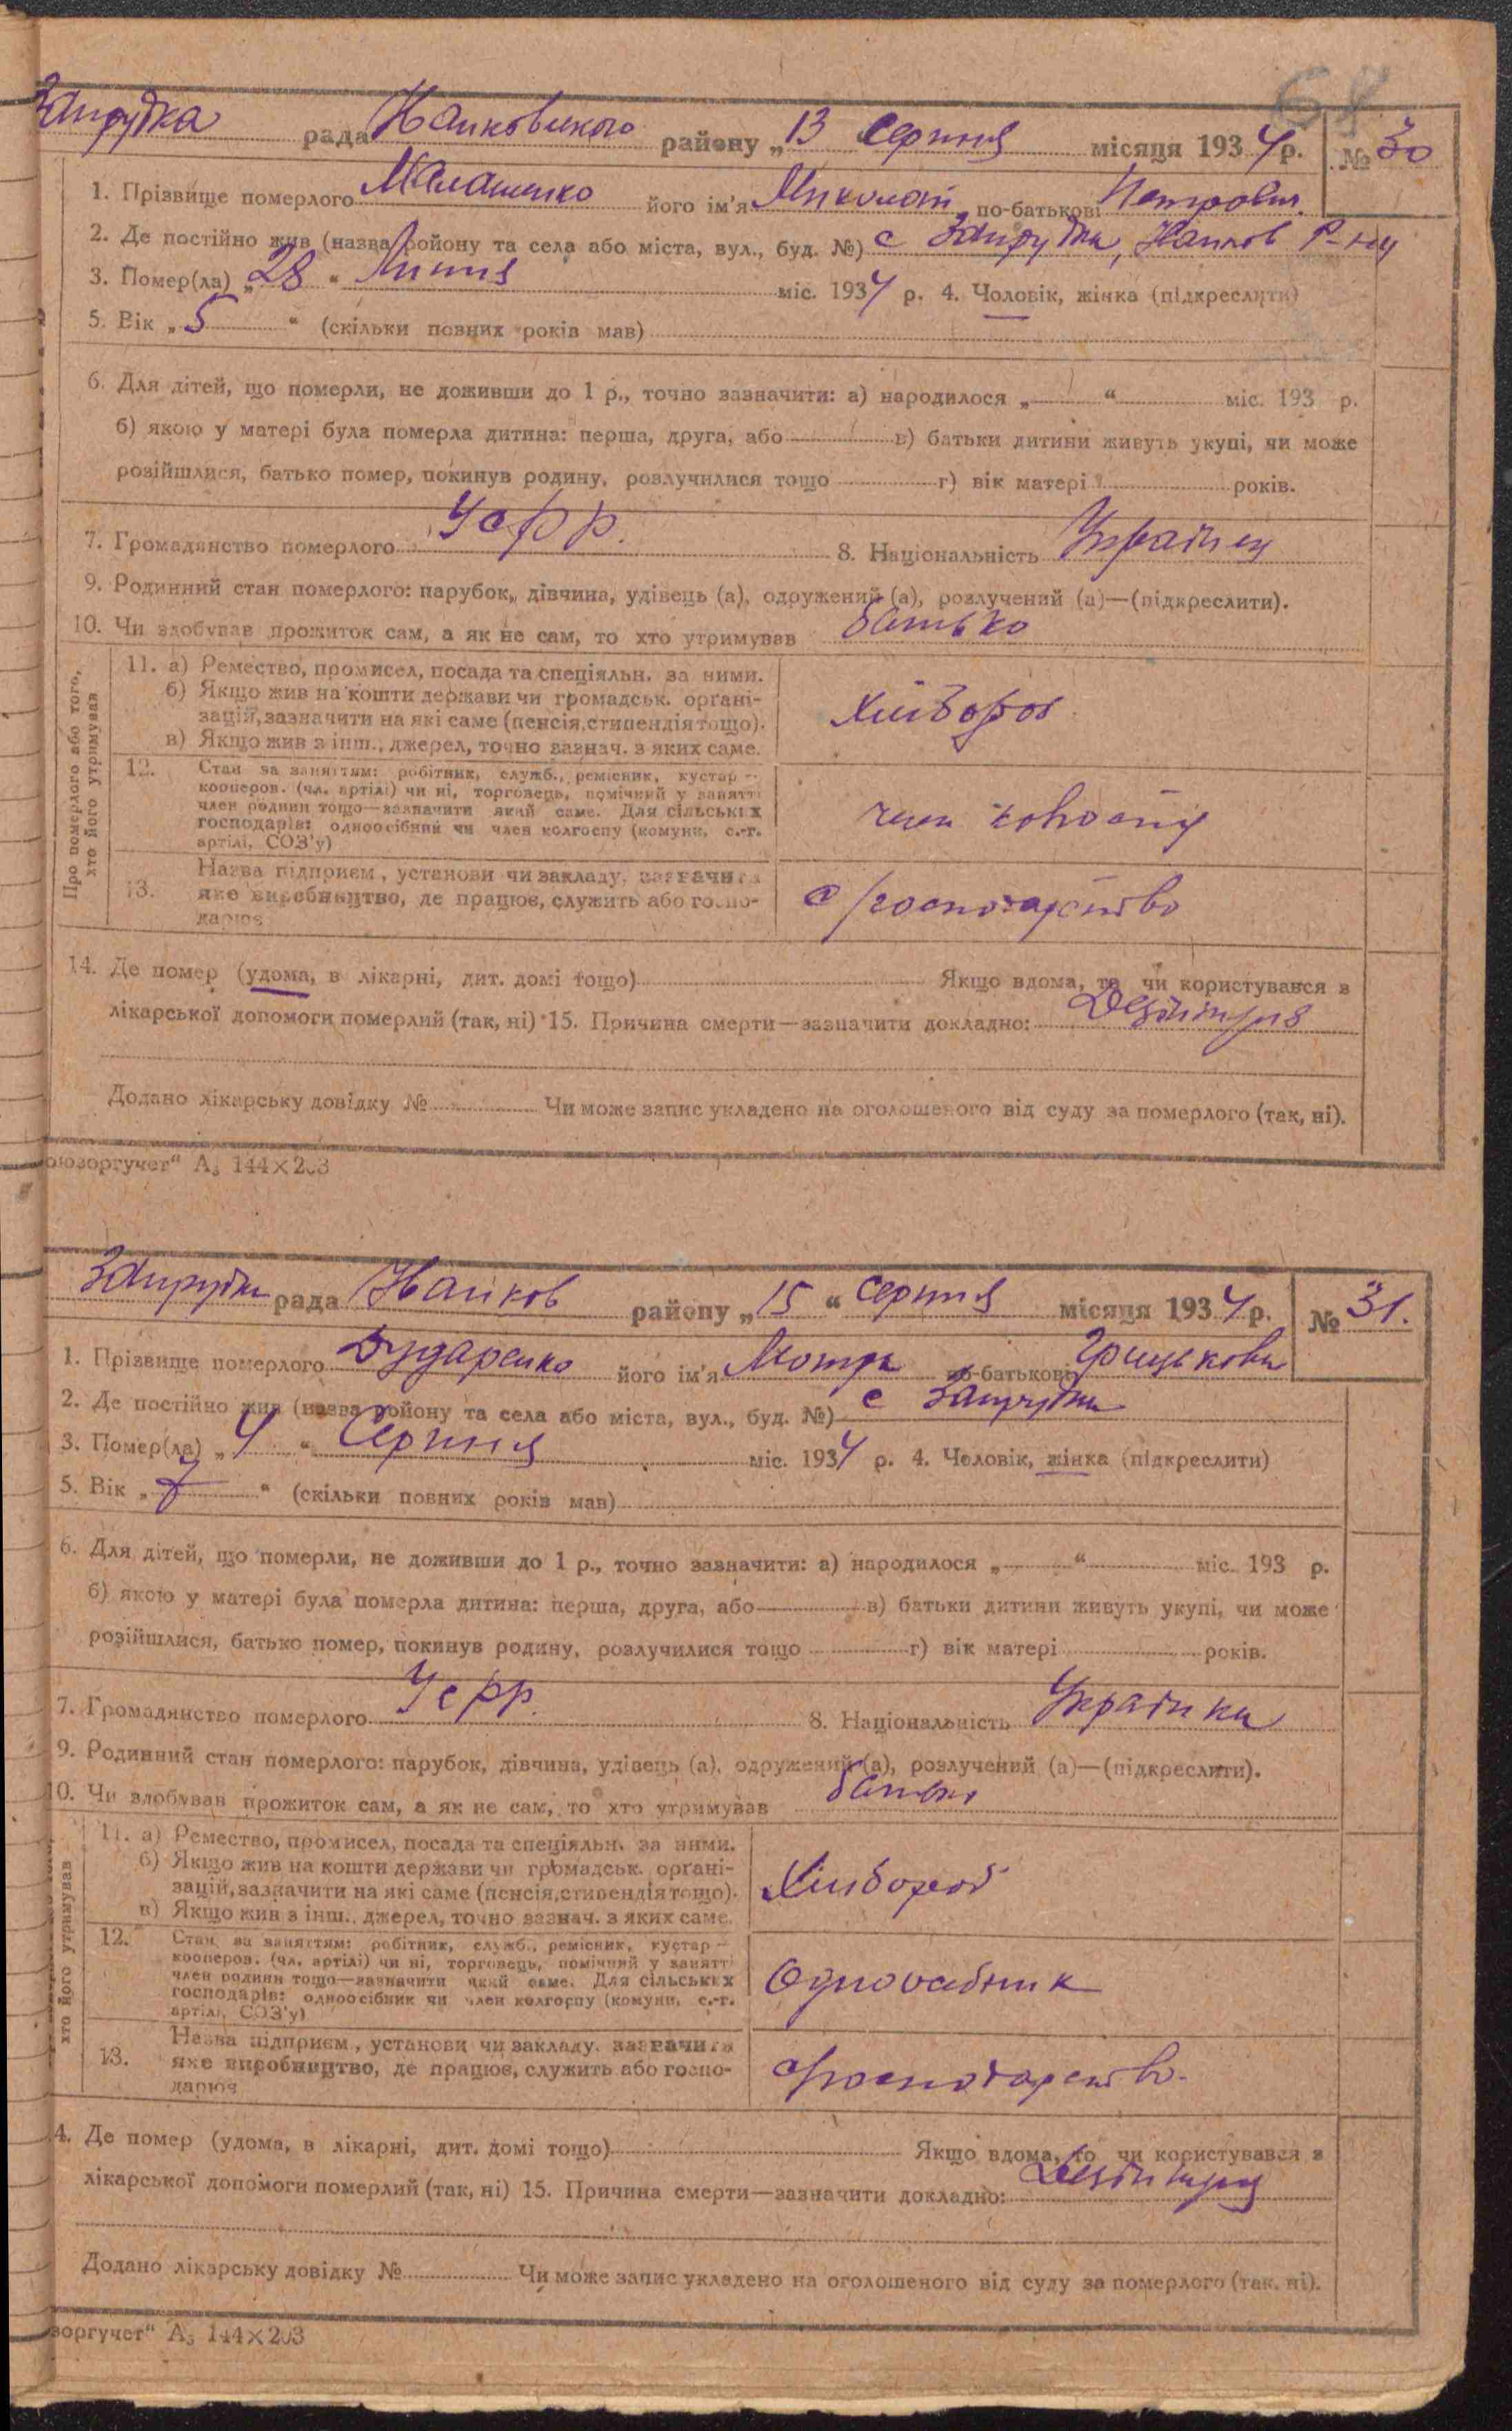 68
Запрудка рада району „13 Серпня місяця 1934 р. № 30
1. Прізвище померлого Малашенко його ім'я Миколай по-батькові Петрович
2. Де постійно жив (назва району та села або міста, вул., буд. №) с Запрудка, Р-ну
3. Помер(ла) „28“ Липня міс. 1934 р. 4. Чоловік, жінка (підкреслити)
5. Вік „5“ (скільки повних років мав)
6. Для дітей, що померли, не доживши до 1 р., точно зазначити: а) народилося „ “ міс. 193 р.
б) якою у матері була померла дитина: перша, друга, або в) батьки дитини живуть укупі, чи може
розійшлися, батько помер, покинув родину, розлучилися тощо г) вік матері років.
7. Громадянство померлого УСРР. 8. Національність Українец
9. Родинний стан померлого: парубок, дівчина, удівець (а), одружений (а), розлучений (а)—(підкреслити).
10. Чи здобував прожиток сам, а як не сам, то хто утримував батько
Про померлого або того, хто його утримував
11. а) Ремество, промисел, посада та спеціяльн. за ними.
б) Якщо жив на кошти держави чи громадськ. органі-
зацій, зазначити на які саме (пенсія, стипендія тощо).
в) Якщо жив з інш., джерел, точно зазнач. з яких саме.
хлібороб
12. Стан за заняттям: робітник, служб., ремісник, кустар—
кооперов. (чл. артілі) чи ні, торговець, помічний у занятті
член родини тощо—зазначити який саме. Для сільських
господарів: одноосібний чи член колгоспу (комуни, с.-г.
артілі, СОЗ'у)
член колгоспу
13. Назва підприєм., установи чи закладу, зазначити
яке виробництво, де працює, служить або госпо-
дарює
с/господарство
14. Де помер (удома, в лікарні, дит. домі тощо) Якщо вдома, то чи користувався з
лікарської допомоги померлий (так, ні) 15. Причина смерти—зазначити докладно: Дезінтерія
Додано лікарську довідку № Чи може запис укладено на оголошеного від суду за померлого (так, ні).
оюзоргучет“ А₅ 144×203
Запрудка рада району „15“ Серпня місяця 1934 р. № 31.
1. Прізвище померлого Дударенко його ім'я Мотря по-батькові Грицькова
2. Де постійно жив (назва району та села або міста, вул., буд. №) с Запрудка
3. Помер(ла) „4“ Серпня міс. 1934 р. 4. Чоловік, жінка (підкреслити)
5. Вік „7“ (скільки повних років мав)
6. Для дітей, що померли, не доживши до 1 р., точно зазначити: а) народилося „ “ міс. 193 р.
б) якою у матері була померла дитина: перша, друга, або в) батьки дитини живуть укупі, чи може
розійшлися, батько помер, покинув родину, розлучилися тощо г) вік матері років.
7. Громадянство померлого УСРР. 8. Національність Українка
9. Родинний стан померлого: парубок, дівчина, удівець (а), одружений (а), розлучений (а)—(підкреслити).
10. Чи здобував прожиток сам, а як не сам, то хто утримував батько
хто його утримував
11. а) Ремество, промисел, посада та спеціяльн. за ними.
б) Якщо жив на кошти держави чи громадськ. органі-
зацій, зазначити на які саме (пенсія, стипендія тощо).
в) Якщо жив з інш., джерел, точно зазнач. з яких саме.
Хлібороб
12. Стан за заняттям: робітник, служб., ремісник, кустар—
кооперов. (чл. артілі) чи ні, торговець, помічний у занятті
член родини тощо—зазначити який саме. Для сільських
господарів: одноосібник чи член колгоспу (комуни, с.-г.
артілі, СОЗ'у)
Одноосібник
13. Назва підприєм., установи чи закладу, зазначити
яке виробництво, де працює, служить або госпо-
дарює
с/господарство.
4. Де помер (удома, в лікарні, дит. домі тощо) Якщо вдома, то чи користувався з
лікарської допомоги померлий (так, ні) 15. Причина смерти—зазначити докладно: Дезінтерія
Додано лікарську довідку № Чи може запис укладено на оголошеного від суду за померлого (так, ні).
зоргучет“ А₅ 144×203